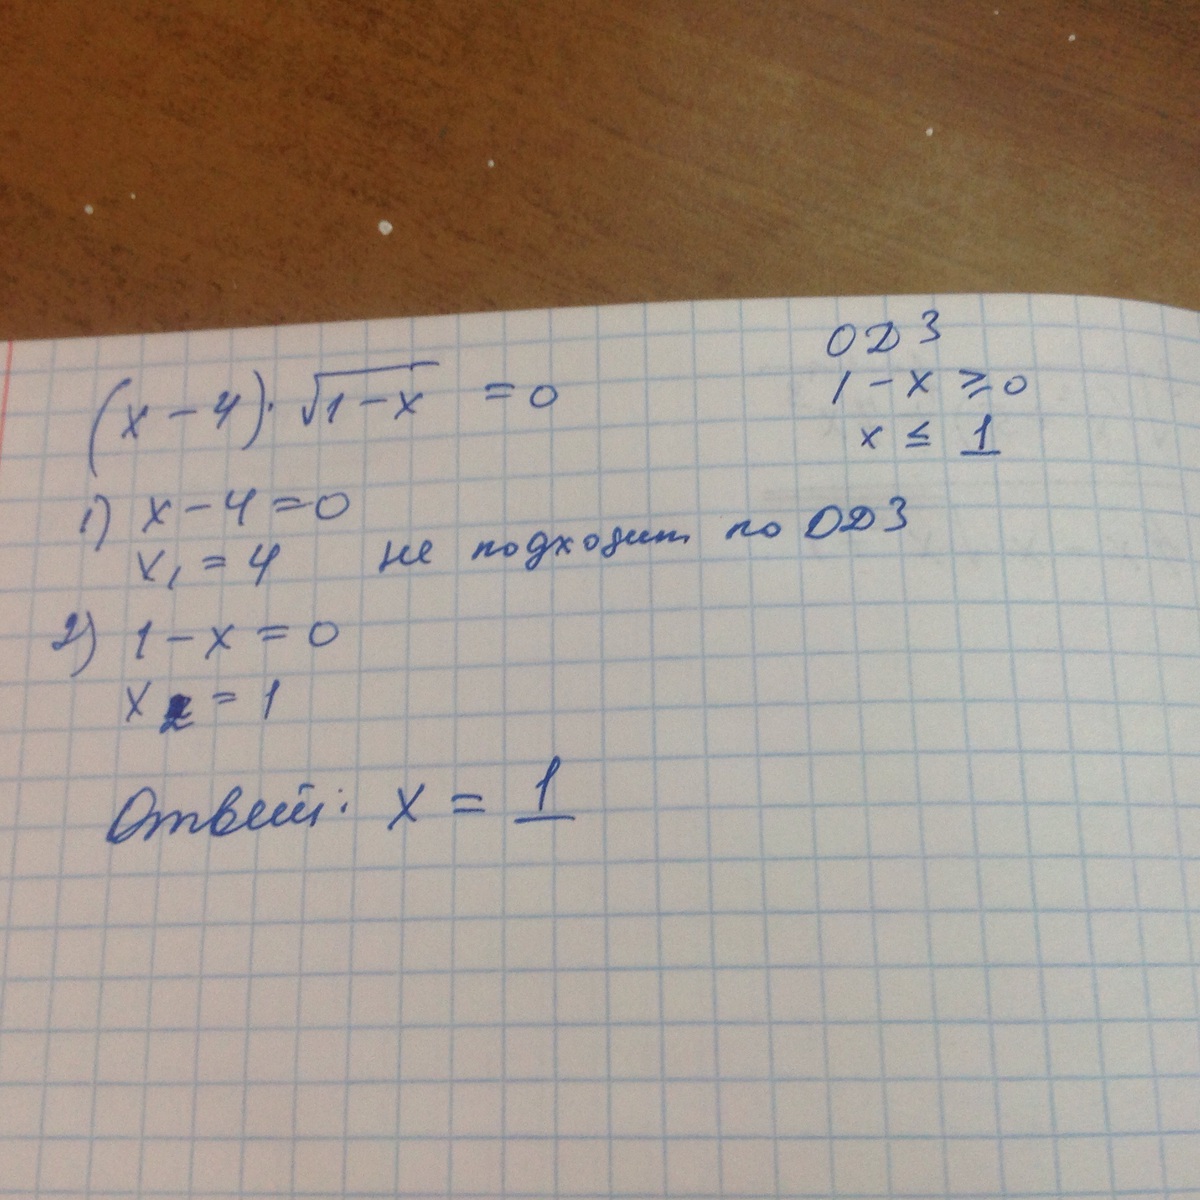 (x-4)·√1-x =0
ОДЗ
1-x ≥0
x ≤ 1
1) x-4=0
x₁=4 не подходит по ОДЗ
2) 1-x=0
x₂=1
Ответ: x = 1